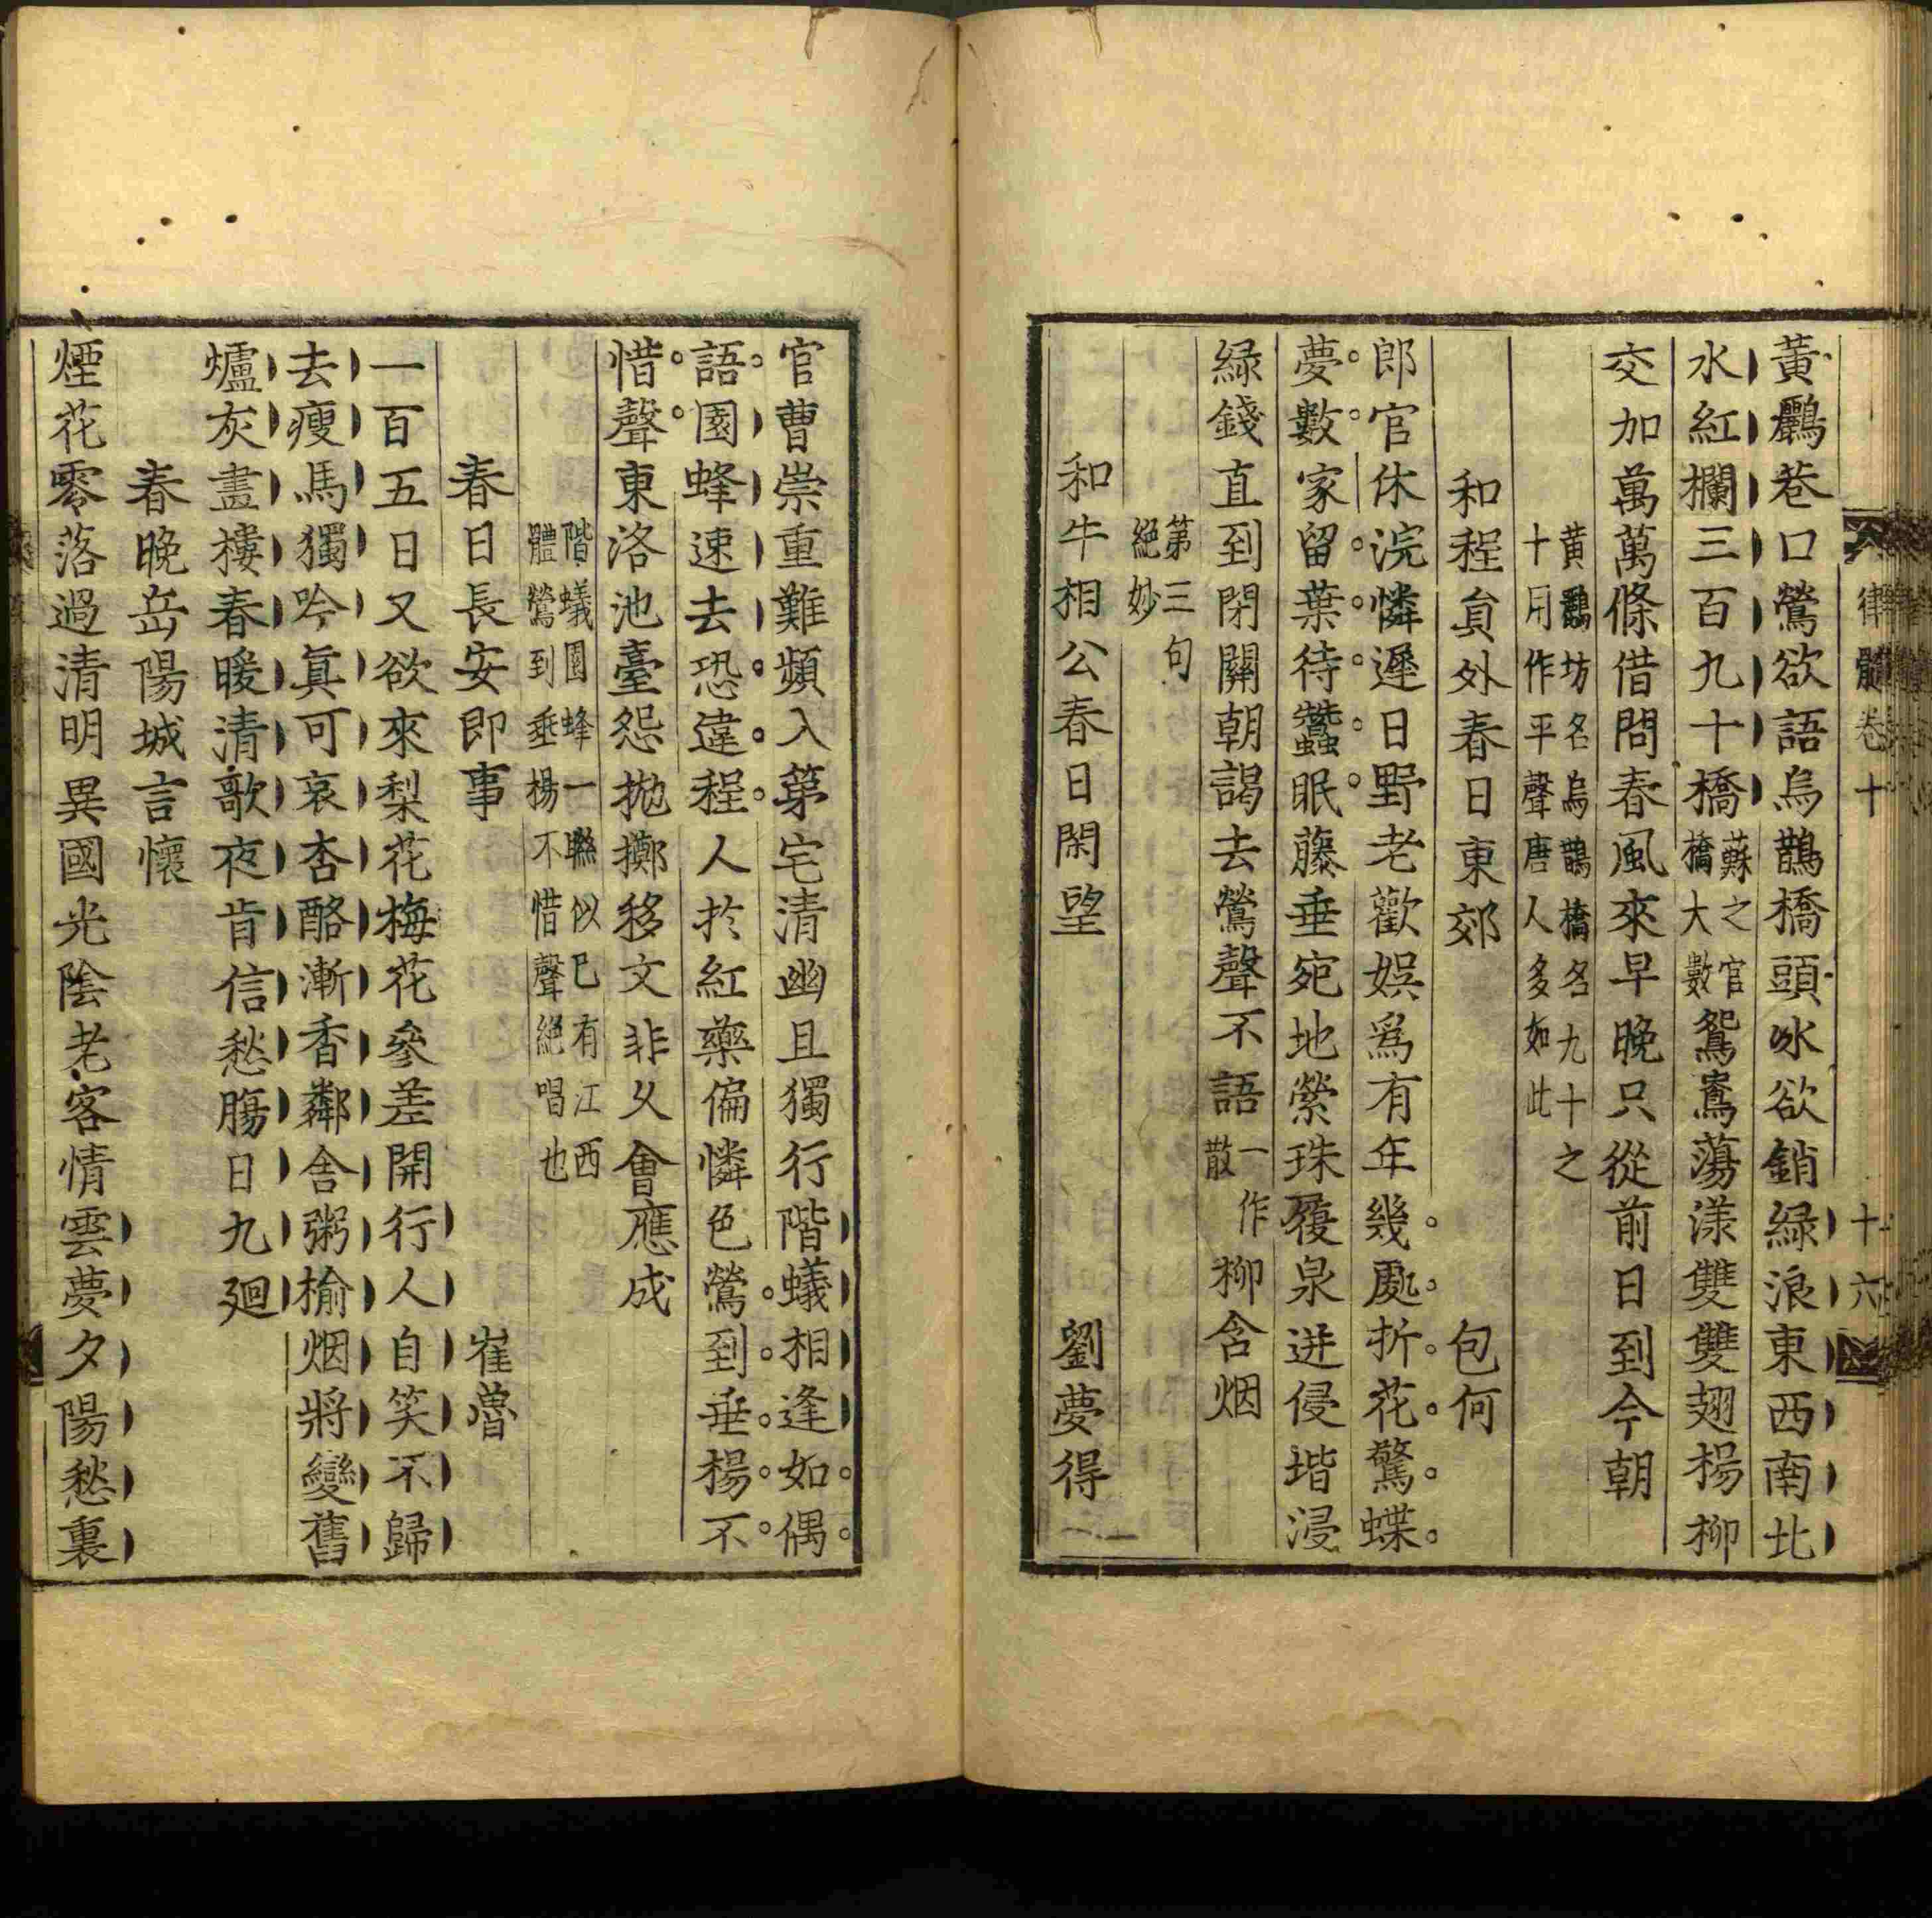 律髓卷十 十六
黃鸝巷口鶯欲語烏鵲橋頭氷欲銷綠浪東西南北
水紅欄三百九十橋蘇之官橋大數鴛鴦蕩漾雙雙翅楊柳
交加萬萬條借問春風來早晚只從前日到今朝
黄鸝坊名烏鵲橋名九十之
十用作平聲唐人多如此
和程貟外春日東郊 包何
郎官休浣憐遲日野老歡娯爲有年幾處折花驚蝶
夢數家留葉待蠶眠藤垂宛地縈珠履泉迸侵堦浸
綠錢直到閉關朝謁去鶯聲不語一作散柳含烟
第三句
絕妙
和牛相公春日閑望 劉夢得
官曹崇重難頻入第宅清幽且獨行階蟻相逢如偶
語園蜂速去恐違程人扵紅藥偏憐色鶯到垂楊不
惜聲東洛池臺怨抛擲移文非乆會應成
階蟻園蜂一聯似已有江西
體鶯到垂楊不惜聲絕唱也
春日長安即事 崔魯
一百五日又欲來梨花梅花參差開行人自笑不歸
去瘦馬獨吟眞可哀杏酪漸香鄰舍粥榆烟將變舊
爐灰畫樓春暖清歌夜肯信愁膓日九廻
春晚岳陽城言懷
煙花零落過清明異國光陰老客情雲夢夕陽愁裏